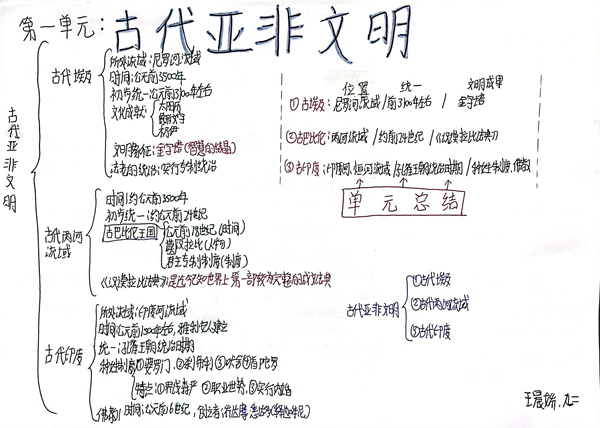 第一单元：古代亚非文明
古代亚非文明
古代埃及
所处流域：尼罗河流域
时间：公元前3500年
初步统一：公元前3100年左右
文化成就：太阳历
象形文字
文明象征：金字塔（智慧的结晶）
法老的统治：实行专制统治
古代两河流域
时间：约公元前3500年
初步统一：约公元前24世纪
古巴比伦王国
公元前18世纪（时间）
汉谟拉比（人物）
君主专制制度（制度）
《汉谟拉比法典》是迄今已知世界上第一部较为完整的成文法典
古代印度
所处流域：印度河流域
时间：公元前1500年左右，雅利安人建立
统一：孔雀王朝统治时期
种姓制度：①婆罗门②刹帝利③吠舍④首陀罗
特点：①等级森严②职业世袭③实行内婚
佛教：时间：公元前6世纪，创立者：乔达摩·悉达多（释迦牟尼）
位置 统一 文明成果
①古埃及：尼罗河流域/前3100年左右/金字塔
②古巴比伦：两河流域/约前24世纪/《汉谟拉比法典》
③古印度：印度河、恒河流域/孔雀王朝统治时期/种姓制度，佛教
单元总结
古代亚非文明
①古代埃及
②古代两河流域
③古代印度